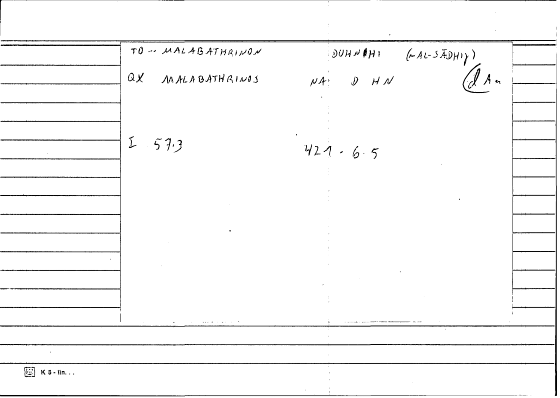 TO -- MALABATHRINON DUHN HI (MAL-SĀDHIǦ)
QX MALABATHRINOS NA D HN d An
I 57.3 421 - 6 5
K 8 - lin...